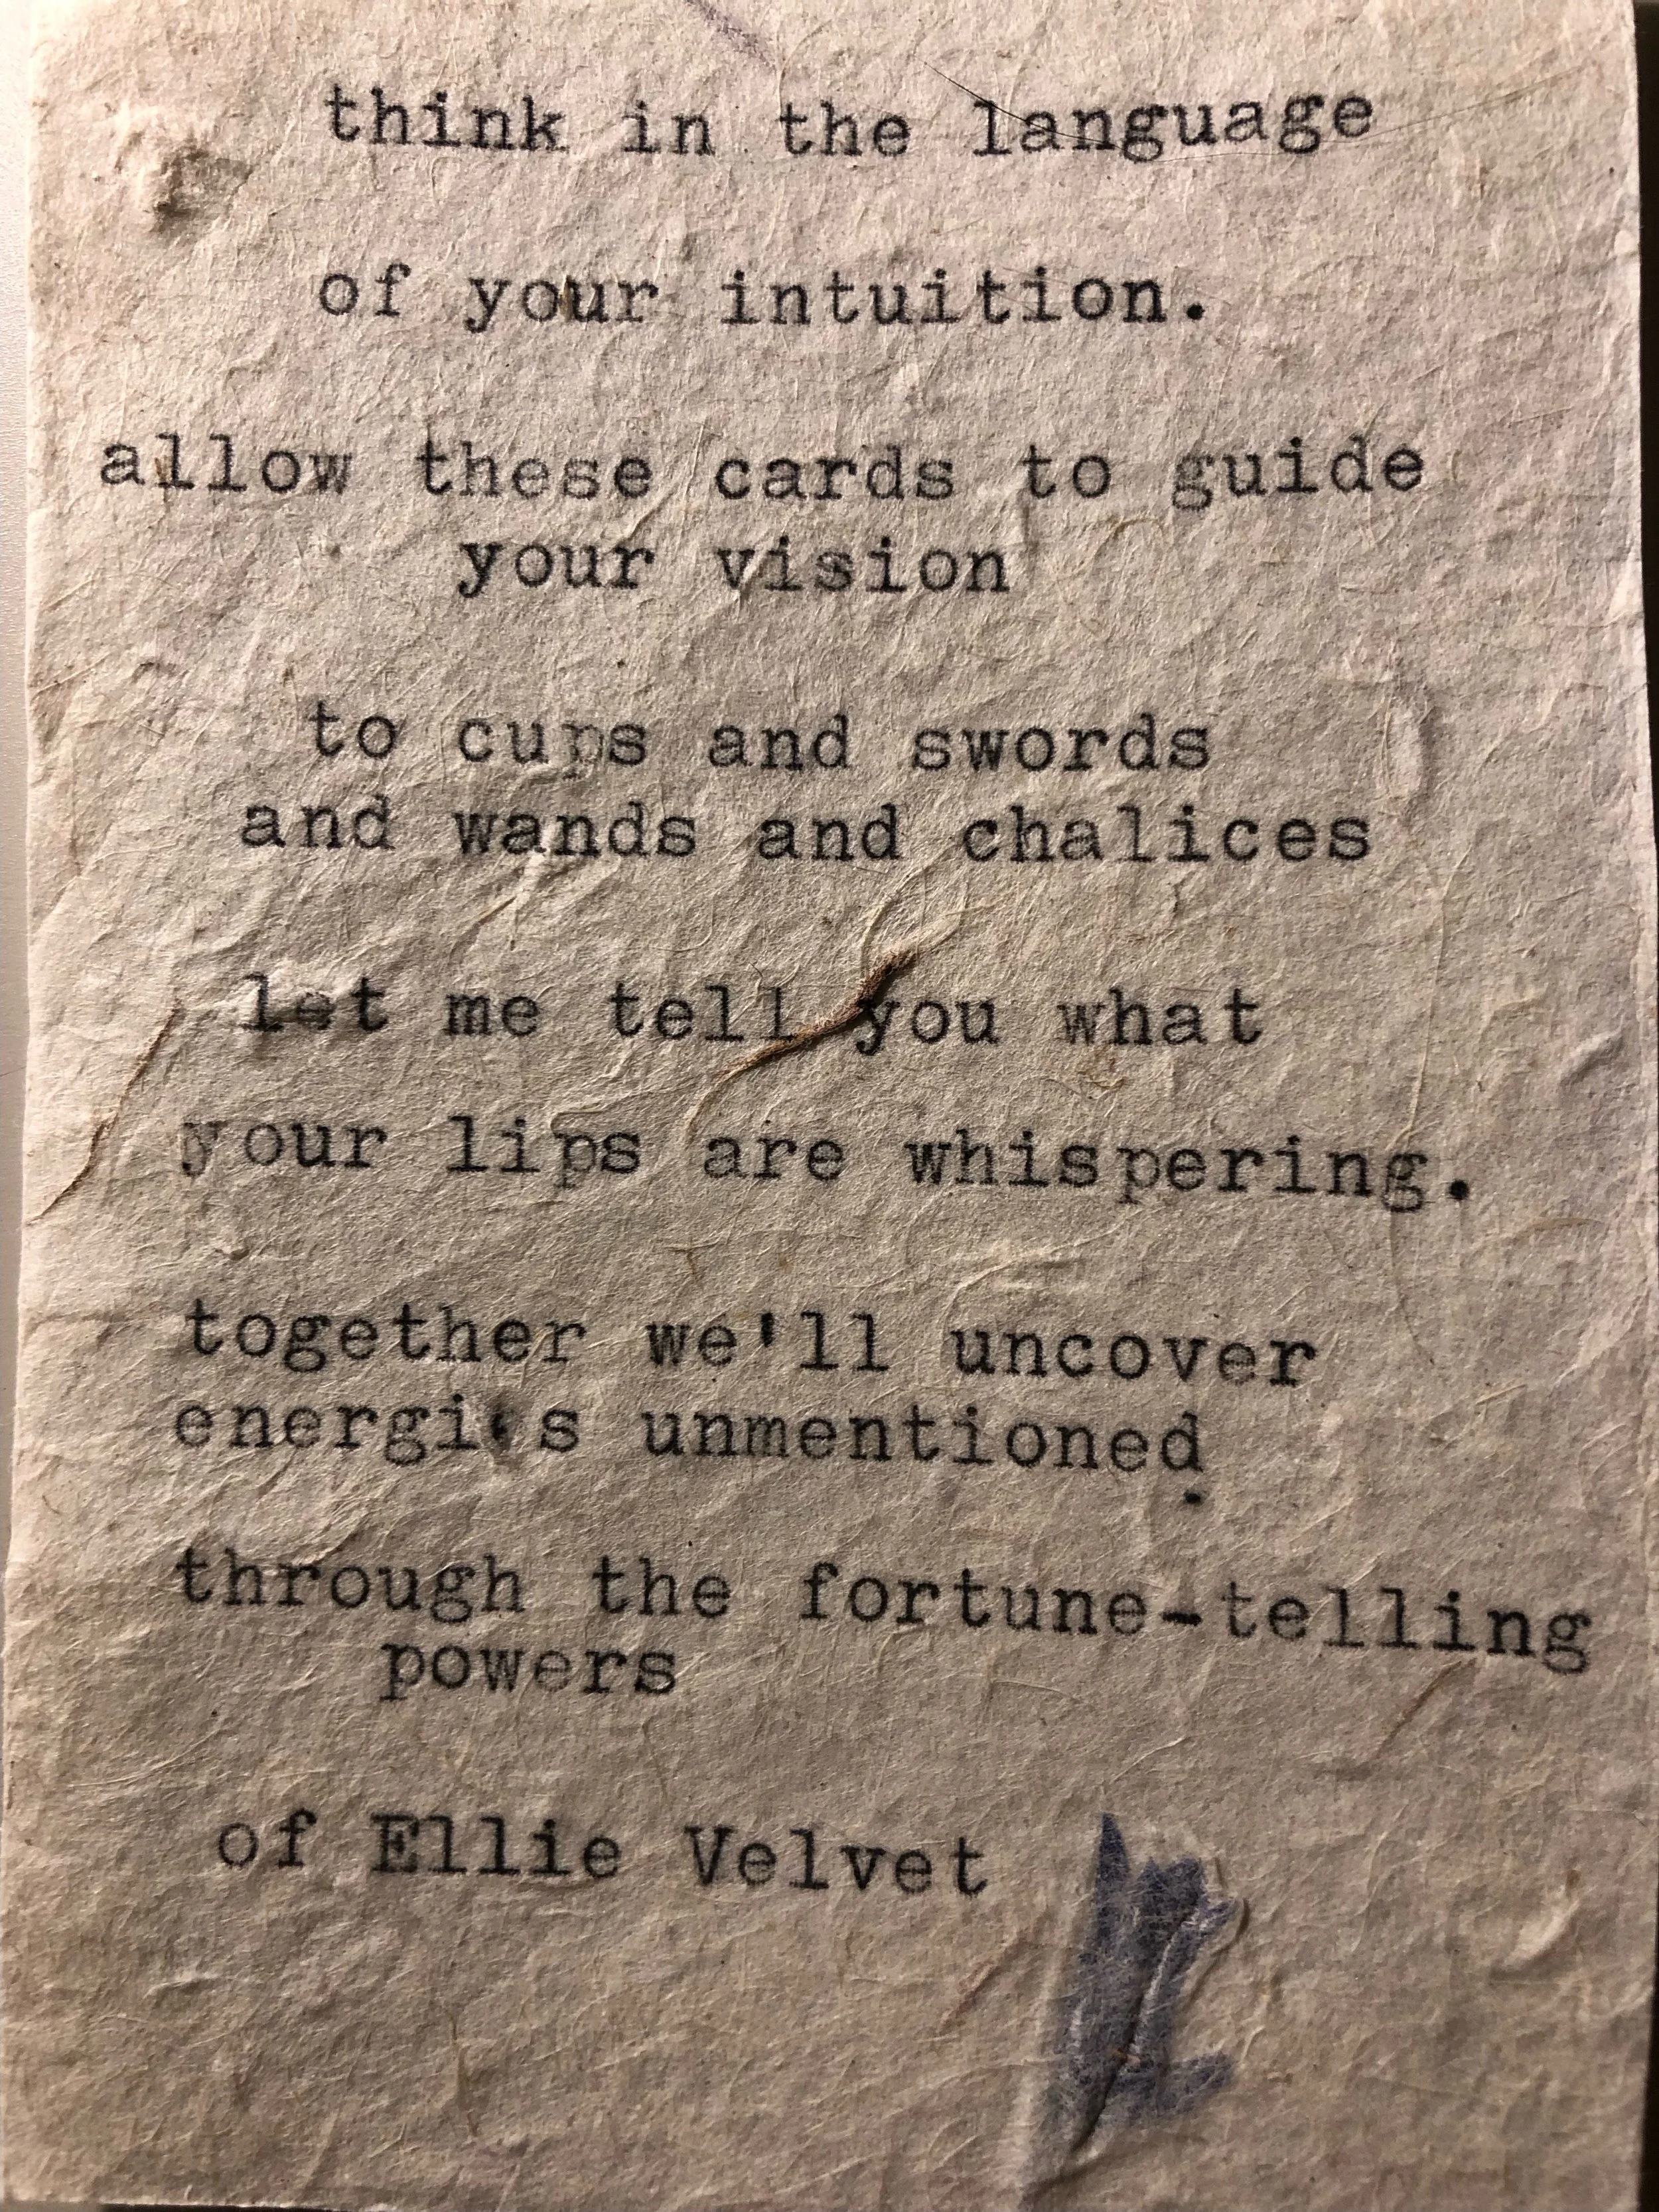 think in the language
of your intuition.
allow these cards to guide
your vision
to cups and swords
and wands and chalices
let me tell you what
your lips are whispering.
together we'll uncover
energies unmentioned
.
through the fortune-telling
powers
of Ellie Velvet